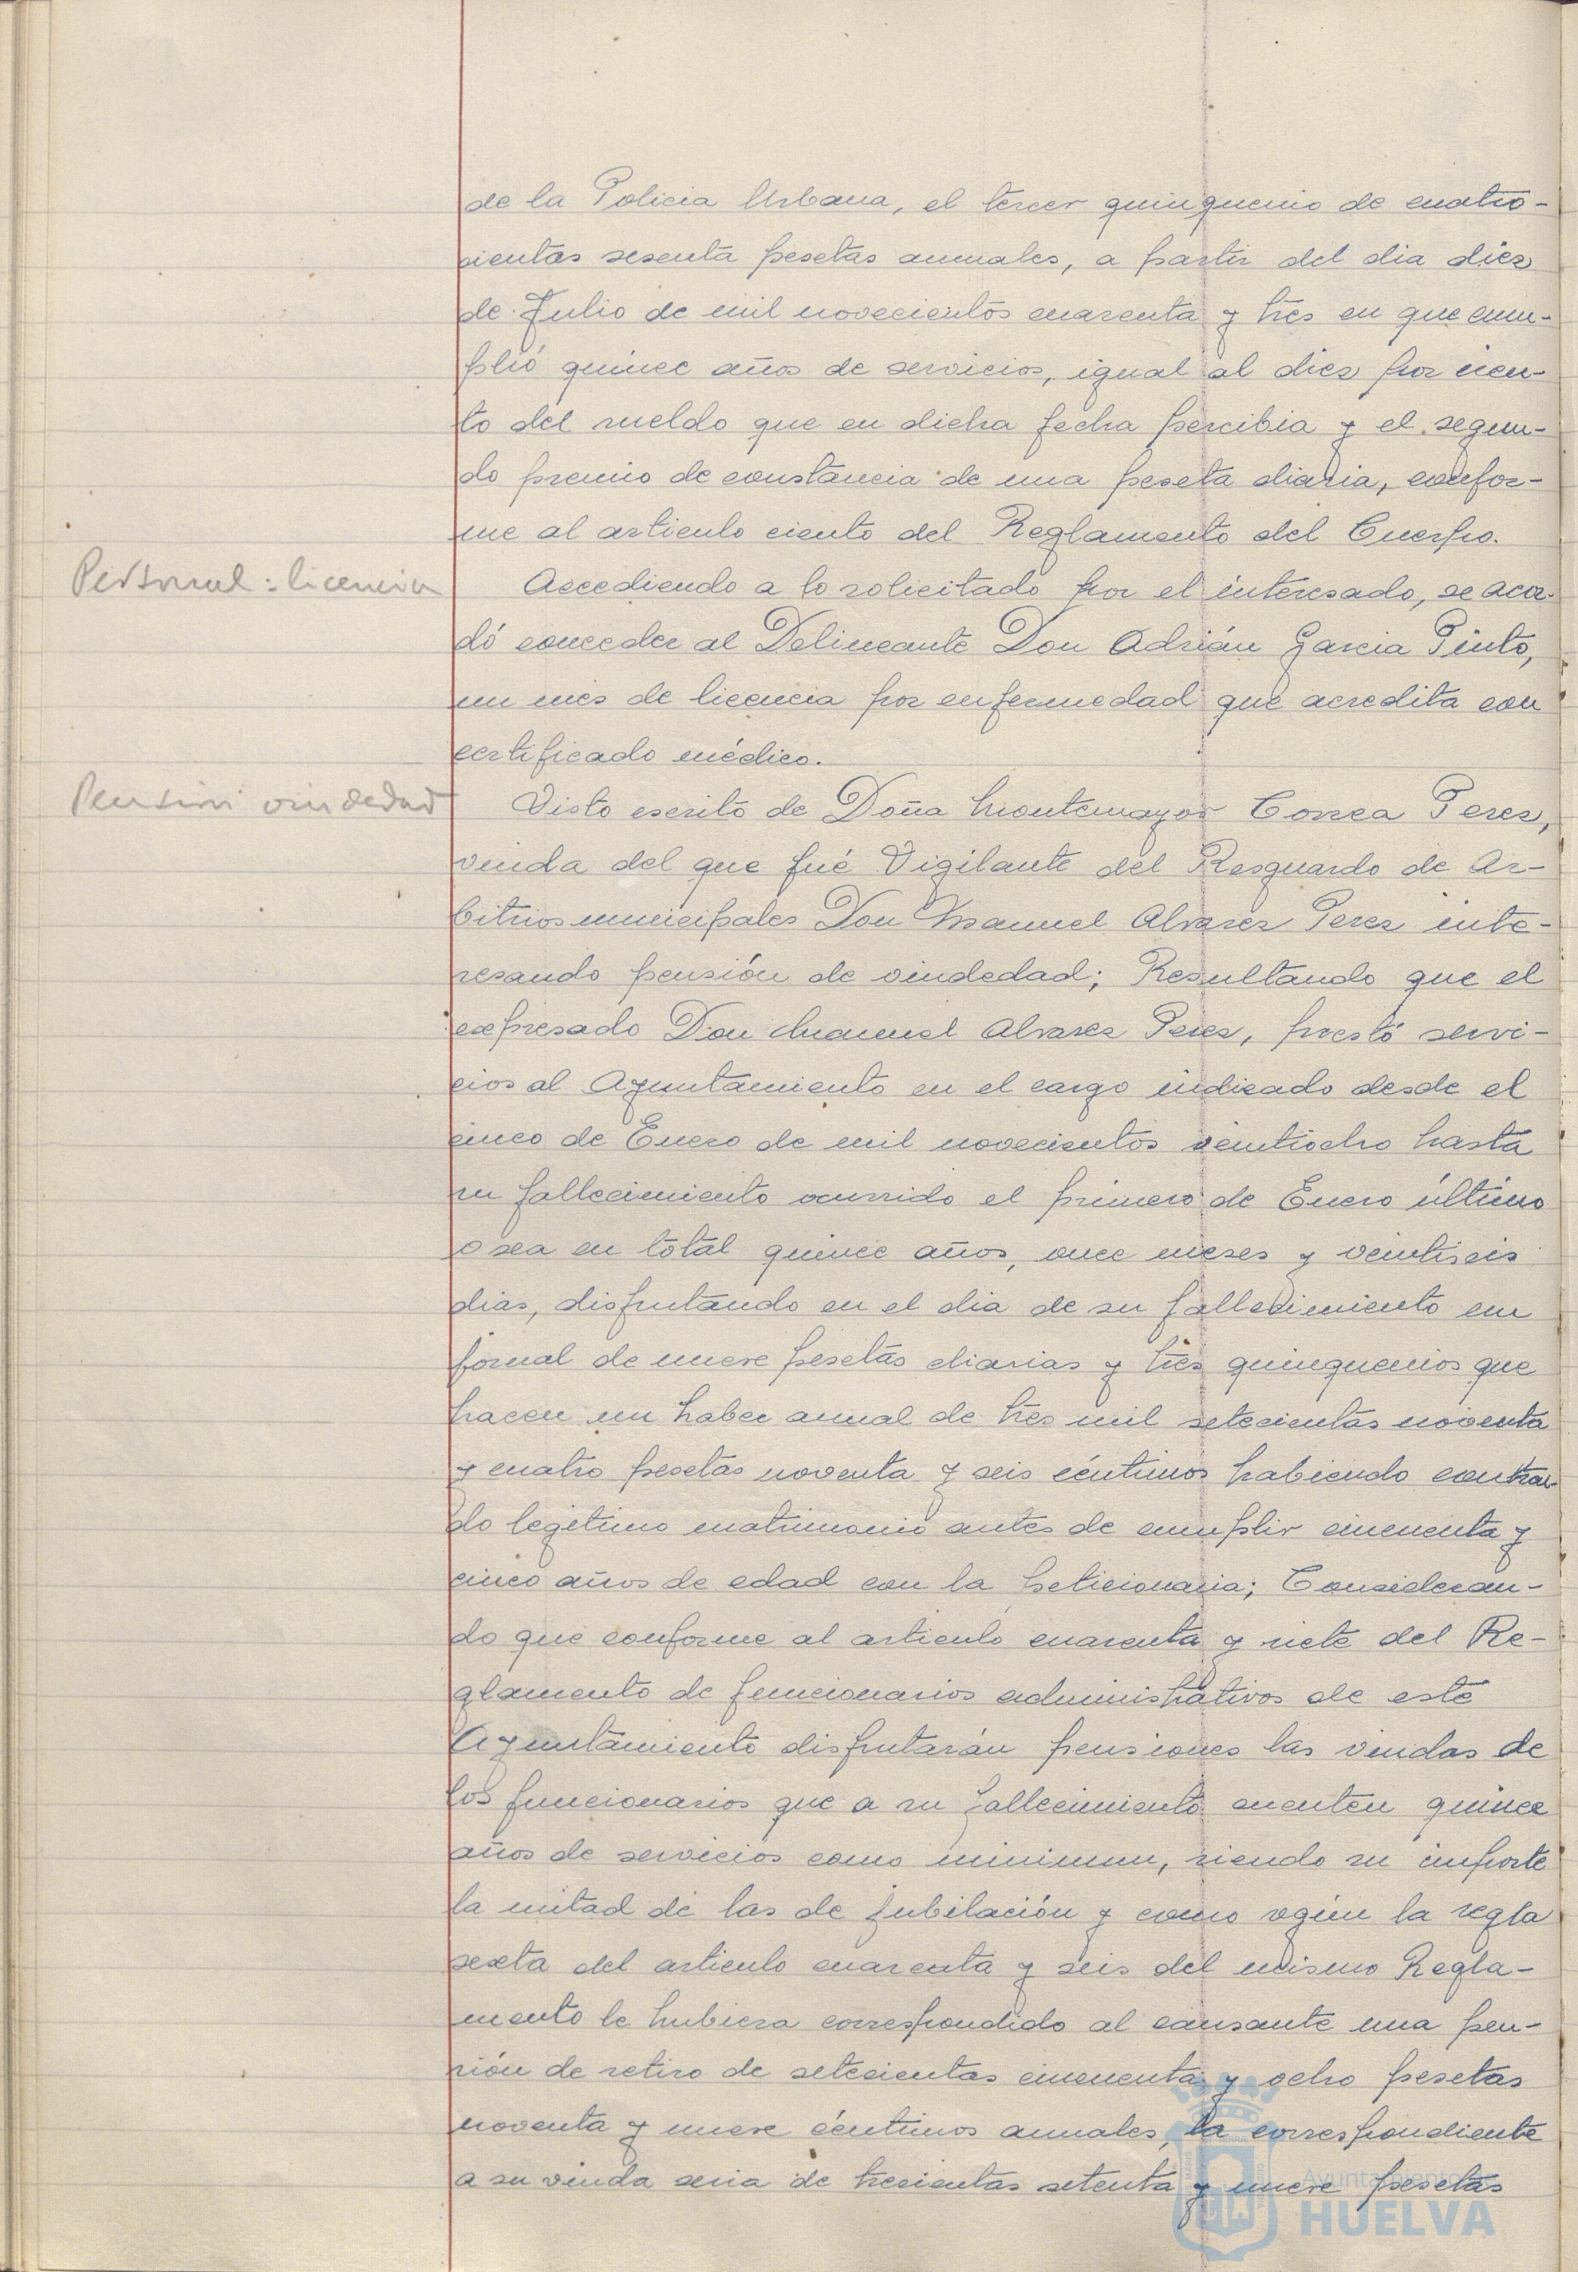 de la Policia Urbana, el tercer quinquenio de cuatro-
cientas sesenta pesetas anuales, a partir del dia diez
de Julio de mil novecientos cuarenta y tres en que cum-
plió quince años de servicios, igual al diez por cien-
to del sueldo que en dicha fecha percibia y el segun-
do premio de constancia de una peseta diaria, confor-
me al articulo ciento del Reglamento del Cuerpo.
Personal: licencia
Accediendo a lo solicitado por el interesado, se acor-
dó conceder al Delineante Don Adrián Garcia Pinto,
un mes de licencia por enfermedad que acredita con
certificado médico.
Pensión viudedad
Visto escrito de Doña Montemayor Correa Perez,
viuda del que fué Vigilante del Resguardo de Ar-
bitrios municipales Don Manuel Alvarez Perez inte-
resando pensión de viudedad; Resultando que el
expresado Don Manuel Alvarez Perez, prestó servi-
cios al Ayuntamiento en el cargo indicado desde el
cinco de Enero de mil novecientos veintiocho hasta
su fallecimiento ocurrido el primero de Enero último
o sea en total quince años, once meses y veintiseis
dias, disfrutando en el dia de su fallecimiento un
jornal de nueve pesetas diarias y tres quinquenios que
hacen un haber anual de tres mil setecientas noventa
y cuatro pesetas noventa y seis céntimos habiendo contrai-
do legitimo matrimonio antes de cumplir cincuenta y
cinco años de edad con la peticionaria; Consideran-
do que conforme al articulo cuarenta y siete del Re-
glamento de funcionarios administrativos de este
Ayuntamiento disfrutarán pensiones las viudas de
los funcionarios que a su fallecimiento cuenten quince
años de servicios como minimun, siendo su importe
la mitad de las de jubilación y como según la regla
sexta del articulo cuarenta y seis del mismo Regla-
mento le hubiera correspondido al causante una pen-
sión de retiro de setecientas cincuenta y ocho pesetas
noventa y nueve céntimos anuales, la correspondiente
a su viuda seria de trescientas setenta y nueve pesetas
Ayuntamiento
HUELVA